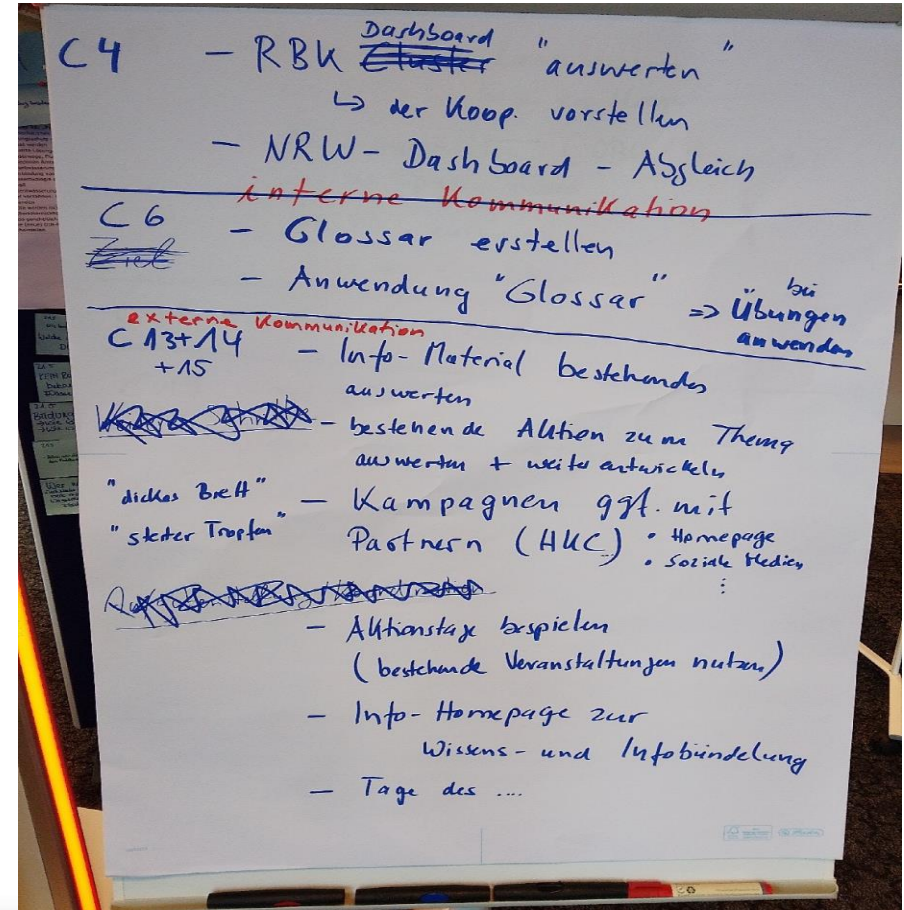 C4 – RBK Dashboard "auswerten"
Cluster
↳ der Koop. vorstellen
– NRW – Dashboard – Abgleich
interne Kommunikation
C6 – Glossar erstellen
Ziel
– Anwendung "Glossar" => bei Übungen anwenden
externe Kommunikation
C 13+14
+15
– Info-Material bestehendes
auswerten
– bestehende Aktion zum Thema
auswerten + weiter entwickeln
"dickes Brett"
"steter Tropfen"
– Kampagnen ggf. mit
Partnern (HKC)
• Homepage
• Soziale Medien
⋮
– Aktionstage bespielen
(bestehende Veranstaltungen nutzen)
– Info-Homepage zur
Wissens- und Infobündelung
– Tage des ....